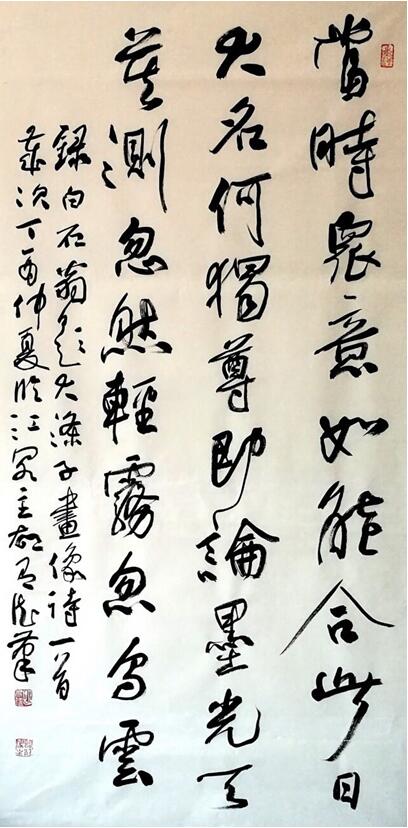 當時衆意如能合此日
大名何獨尊即論墨光天
莫測忽然輕霧忽烏雲
錄白石翁題大滌子畫像詩一首
歲次丁酉仲夏臨江主筆